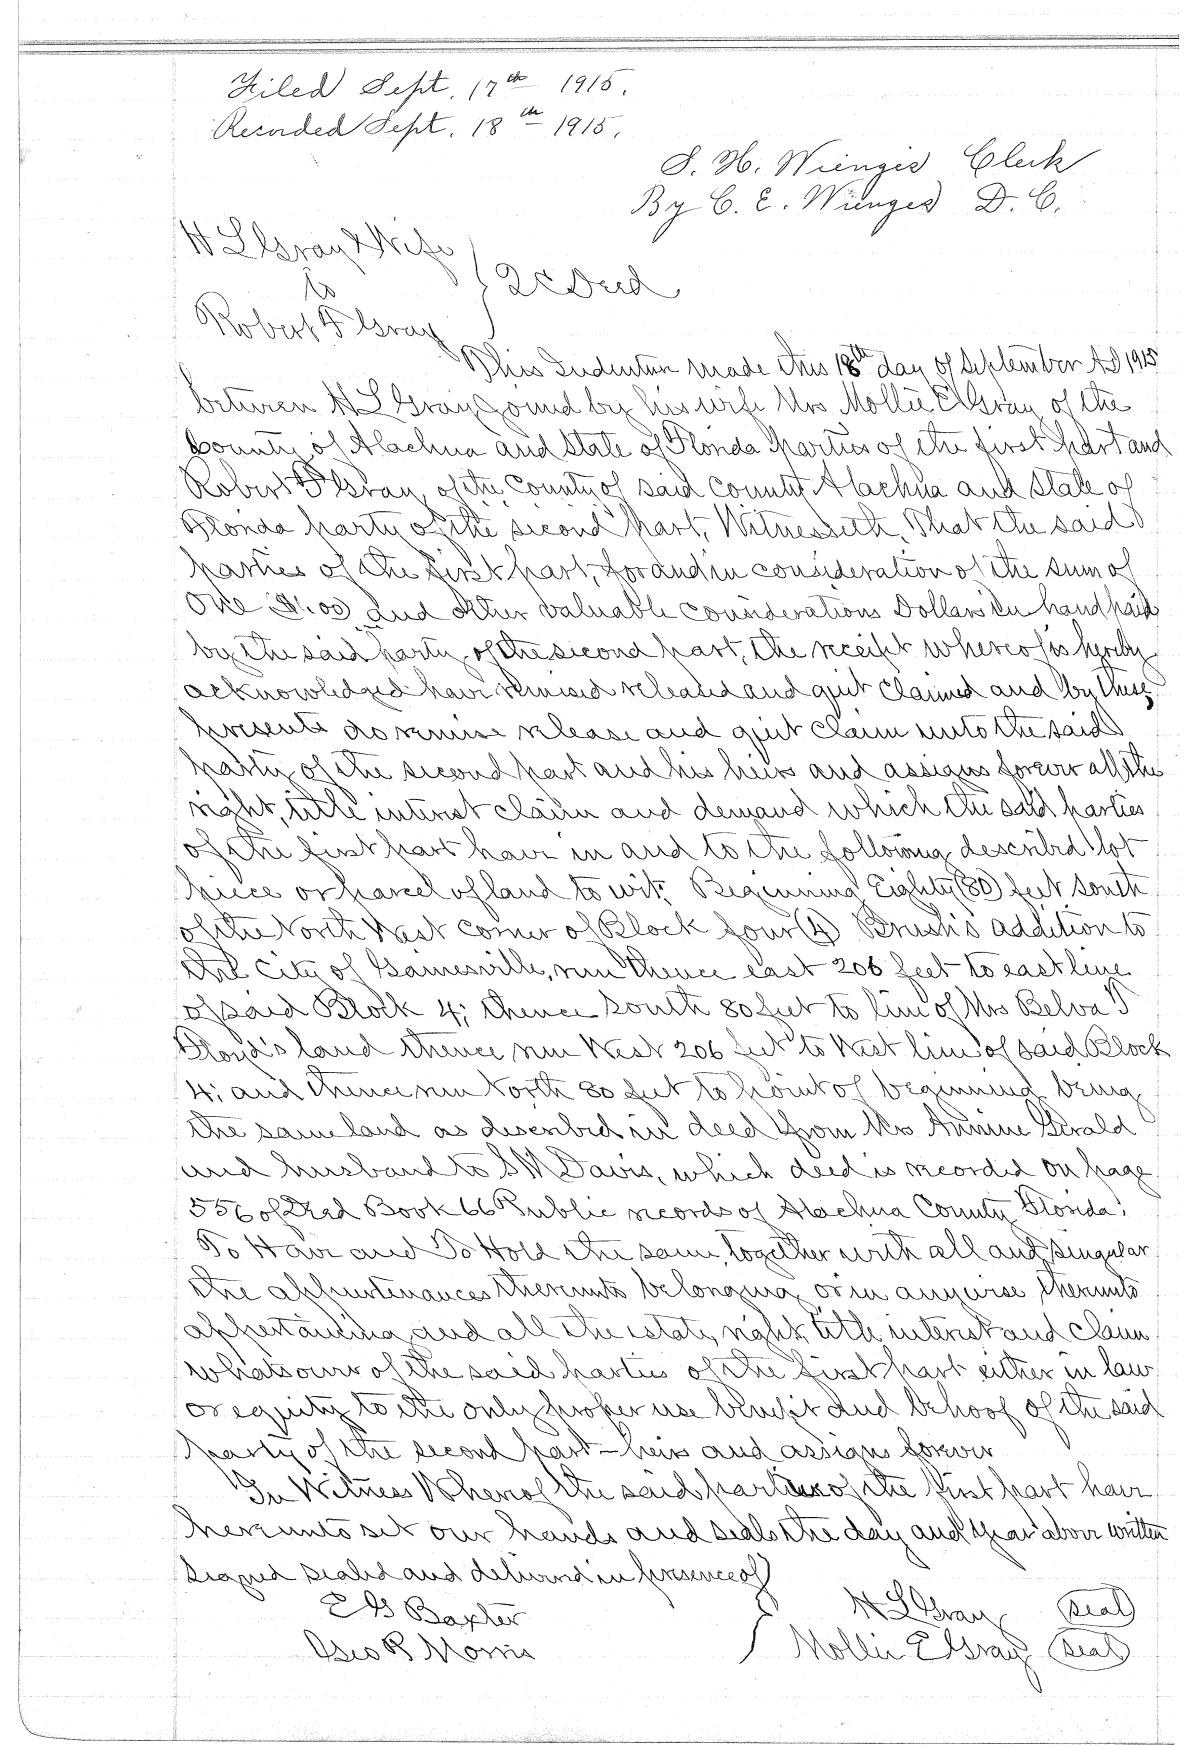 Filed Sept. 17th 1915.
Recorded Sept. 18th 1915.
S. H. Wienges Clerk
By C. E. Wienges D. C.
H L Gray & Wife
to
Robert F Gray
Q C Deed
This Indenture made this 18th day of September AD 1915
between H L Gray joined by his wife Mrs Mollie E Gray of the
County of Alachua and State of Florida parties of the first part and
Robert F Gray of the County of said county Alachua and State of
Florida party of the second part, Witnesseth, That the said
parties of the first part, for and in consideration of the sum of
One $1.00 and other valuable considerations Dollars in hand paid
by the said party of the second part, the receipt whereof is hereby
acknowledged have remised released and quit claimed and by these
presents do remise release and quit claim unto the said
party of the second part and his heirs and assigns forever all the
right, title interest claim and demand which the said parties
of the first part have in and to the following described lot
piece or parcel of land to wit: Beginning Eighty (80) feet south
of the North West corner of Block four (4) Brush's addition to
the City of Gainesville, run thence east 206 feet to east line
of said Block 4; thence south 80 feet to line of Mrs Belva T
Floyd's land thence run West 206 feet to West line of said Block
4; and thence run North 80 feet to point of beginning being
the same land as described in deed from Mrs Annine Gerald
and husband to S M Davis, which deed is recorded on page
556 of Deed Book 66 Public records of Alachua County Florida;
To Have and To Hold the same, together with all and singular
the appurtenances thereunto belonging or in anywise thereunto
appertaining and all the estate, right, title interest and claim
whatsoever of the said parties of the first part either in law
or equity to the only proper use benefit and behoof of the said
party of the second part - heirs and assigns forever
In Witness Whereof the said parties of the first part have
hereunto set our hands and seals the day and year above written
Signed sealed and delivered in presence of
E G Baxter
Geo R Morris
H L Gray (seal)
Mollie E Gray (seal)